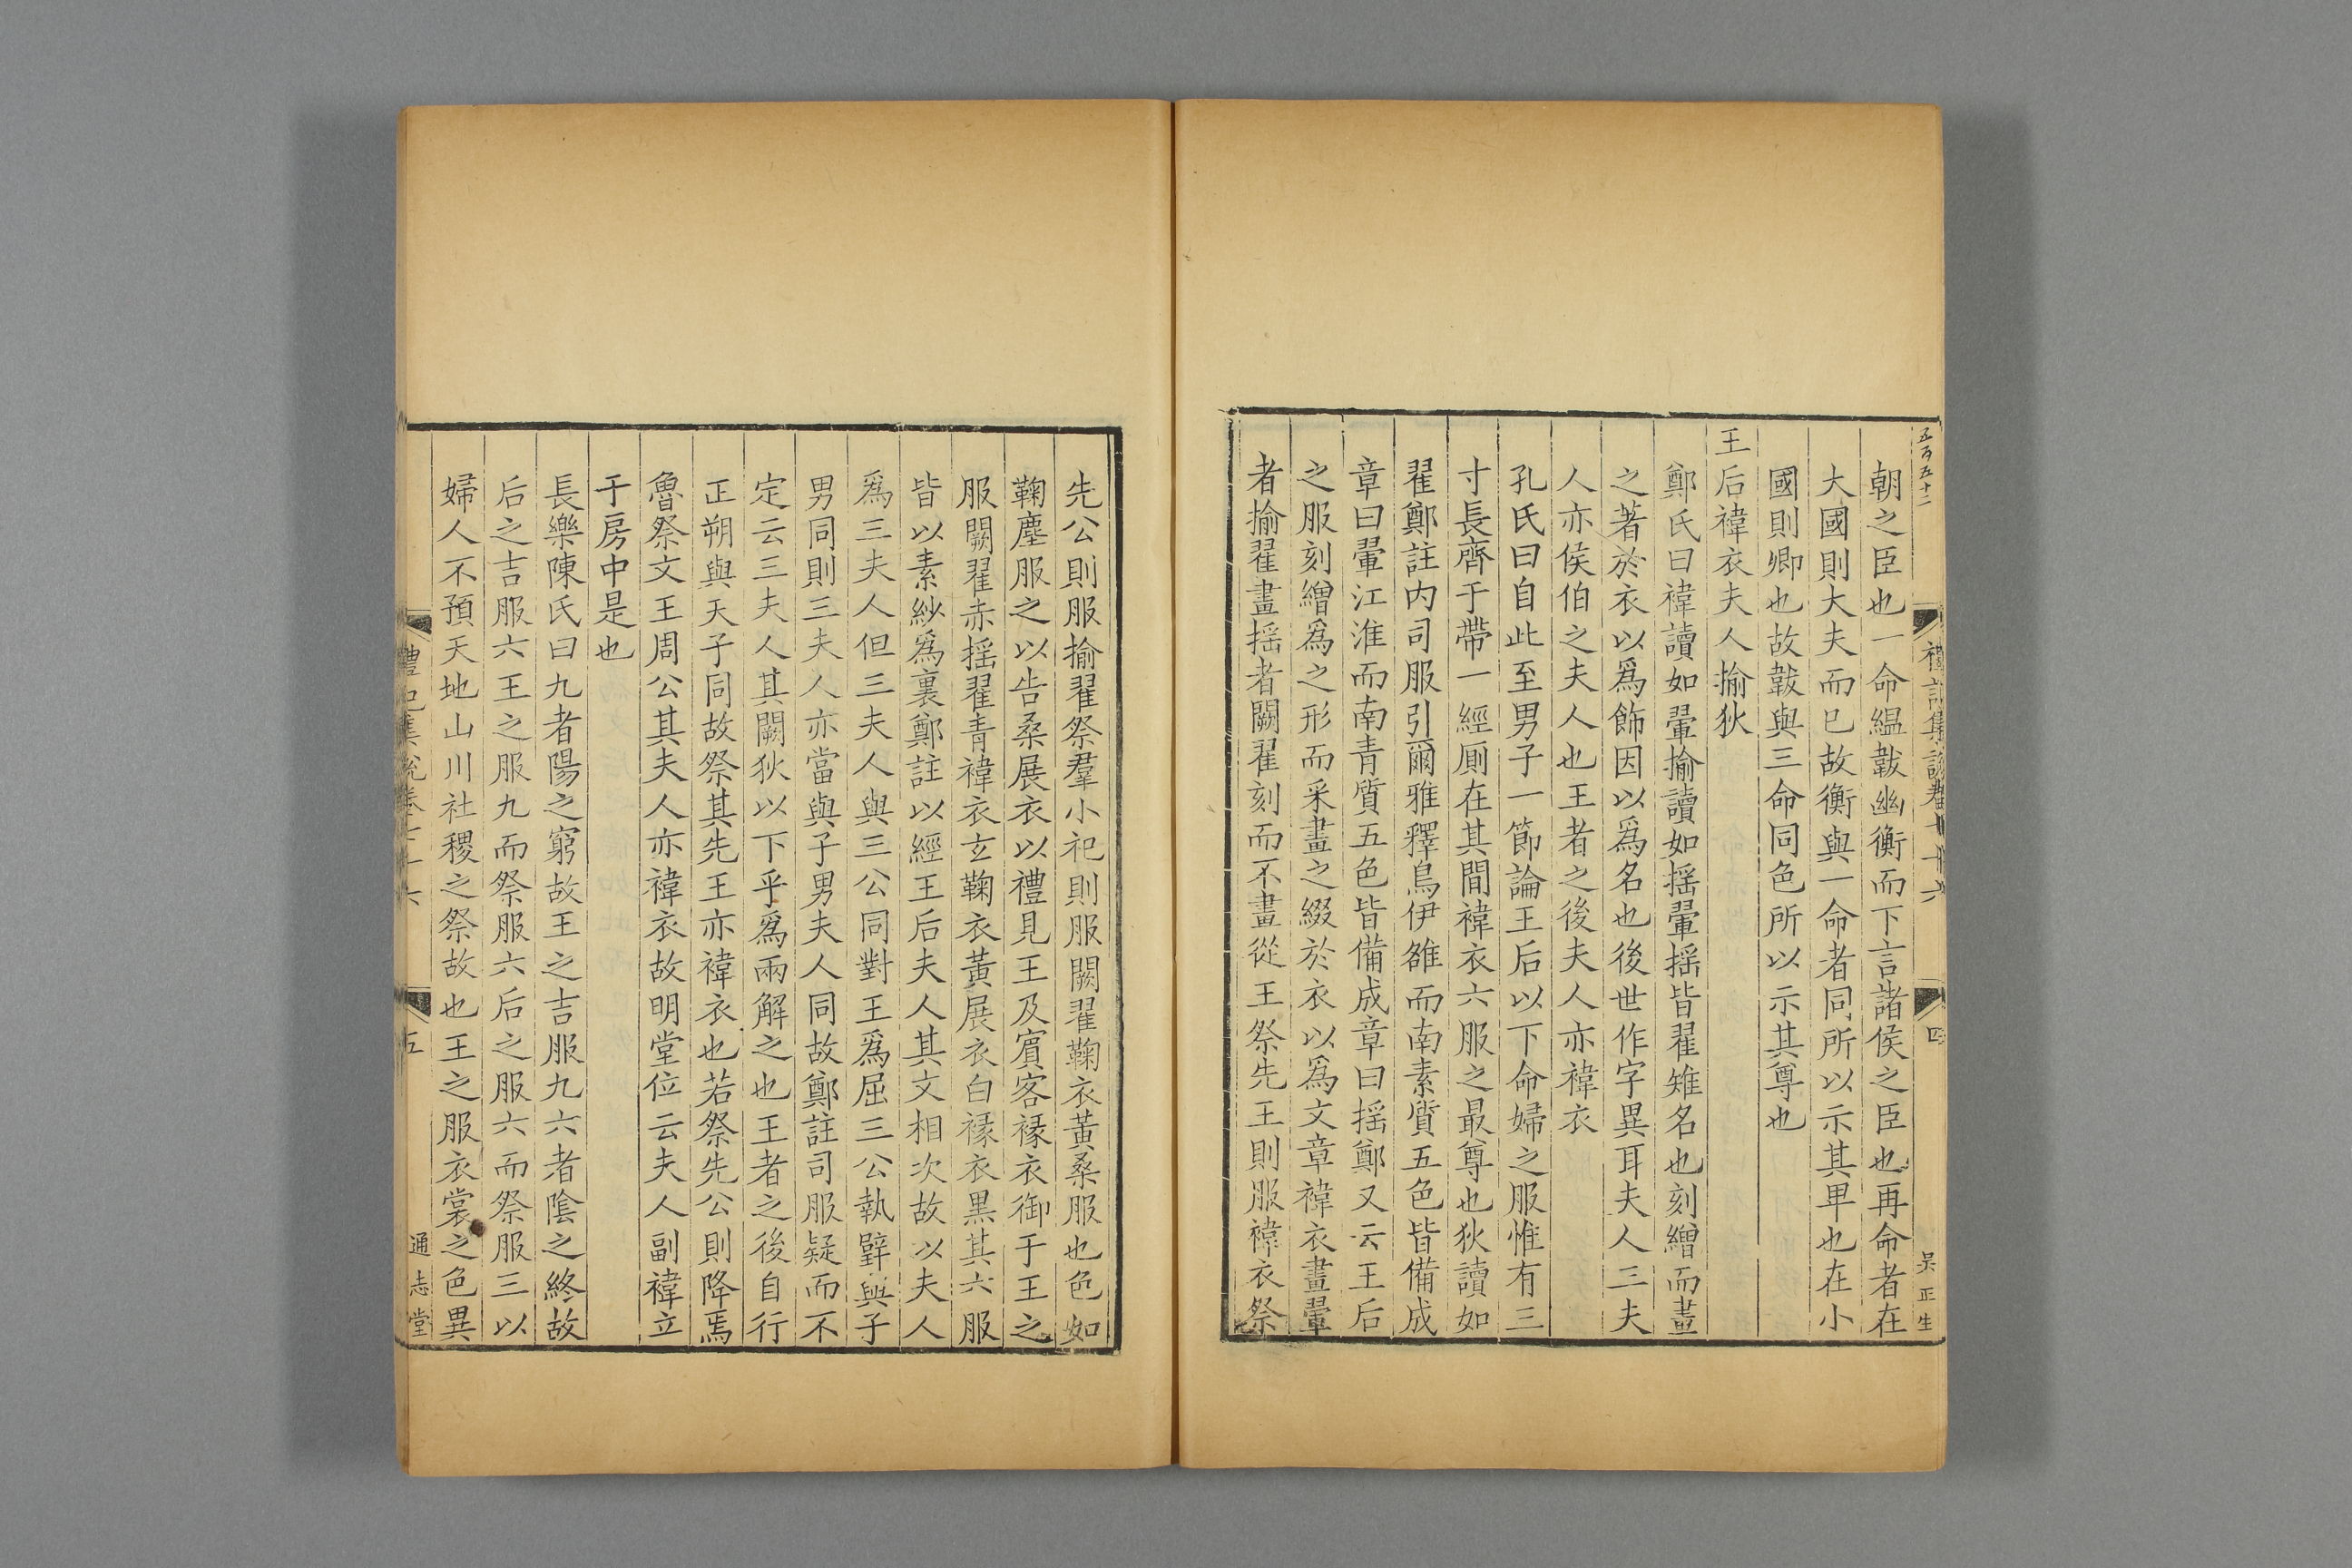 五百五十二
禮記集說卷七十六
四
吳正生
朝之臣也一命縕韍幽衡而下言諸侯之臣也再命者在
大國則大夫而已故衡與一命者同所以示其卑也在小
國則卿也故韍與三命同色所以示其尊也
王后褘衣夫人揄狄
鄭氏曰褘讀如翬揄讀如揺翬揺皆翟雉名也刻繒而畫
之著於衣以爲飾因以爲名也後世作字異耳夫人三夫
人亦侯伯之夫人也王者之後夫人亦褘衣
孔氏曰自此至男子一節論王后以下命婦之服惟有三
寸長齊于帶一經厠在其間褘衣六服之最尊也狄讀如
翟鄭註内司服引爾雅釋鳥伊雒而南素質五色皆備成
章曰翬江淮而南青質五色皆備成章曰揺鄭又云王后
之服刻繒爲之形而采畫之綴於衣以爲文章褘衣畫翬
者揄翟畫揺者闕翟刻而不畫從王祭先王則服褘衣祭
先公則服揄翟祭羣小祀則服闕翟鞠衣黃桑服也色如
鞠塵服之以告桑展衣以禮見王及賔客褖衣御于王之
服闕翟赤揺翟青褘衣玄鞠衣黃展衣白褖衣黒其六服
皆以素紗爲裏鄭註以經王后夫人其文相次故以夫人
爲三夫人但三夫人與三公同對王爲屈三公執璧與子
男同則三夫人亦當與子男夫人同故鄭註司服疑而不
定云三夫人其闕狄以下乎爲兩解之也王者之後自行
正朔與天子同故祭其先王亦褘衣也若祭先公則降焉
魯祭文王周公其夫人亦褘衣故明堂位云夫人副褘立
于房中是也
長樂陳氏曰九者陽之窮故王之吉服九六者隂之終故
后之吉服六王之服九而祭服六后之服六而祭服三以
婦人不預天地山川社稷之祭故也王之服衣裳之色異
禮記集說卷七十六
五
通志堂